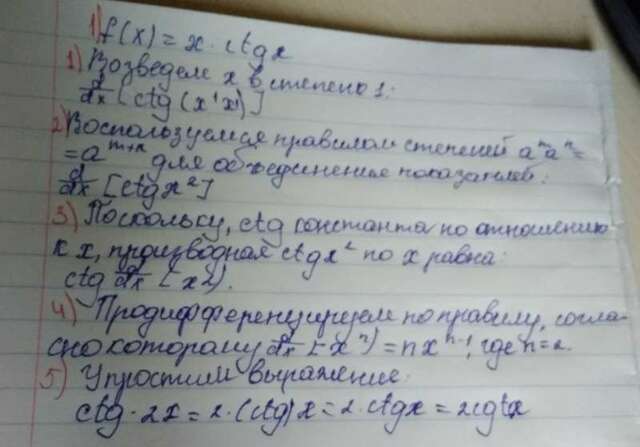 1) f(x) = x · ctgx
1) Возведем x в степень 1:
d/dx [ctg (x¹x¹)]
2) Воспользуемся правилом степеней aᵐaⁿ =
= aᵐ⁺ⁿ для объединения показателей:
d/dx [ctgx²]
3) Поскольку, ctg константа по отношению
к x, производная ctgx² по x равна:
ctg d/dx [x2].
4) Продифференцируем по правилу, согла-
сно которому d/dx [xⁿ) = nxⁿ⁻¹, где n=2.
5) Упростим выражение:
ctg · 2x = 2 · (ctg)x = 2 · ctgx = 2cgtx